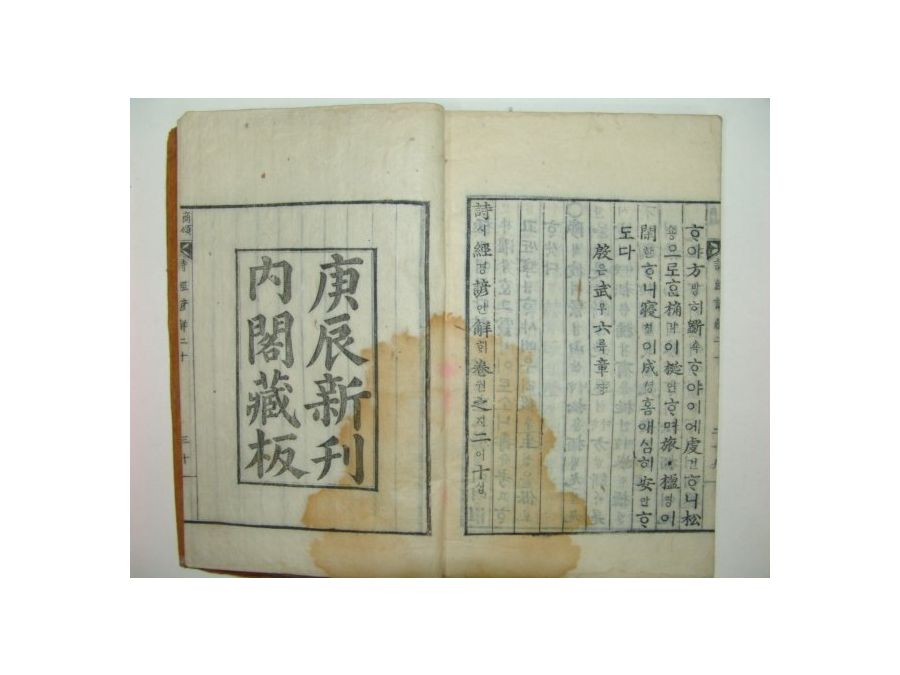 ᄒᆞ야方방히斲착ᄒᆞ야이에虔건ᄒᆞ니松
숑으로ᄒᆞᆫ桷각이梴연ᄒᆞ며旅楹영이
閑한ᄒᆞ니寢침이成셩홈애심히安안ᄒᆞ
도다
殷은武무六륙章쟝
詩시經경諺언解ᄒᆡ卷권之지二이十십
庚辰新刊
內閣藏板
商頌 詩經諺解二十 三十